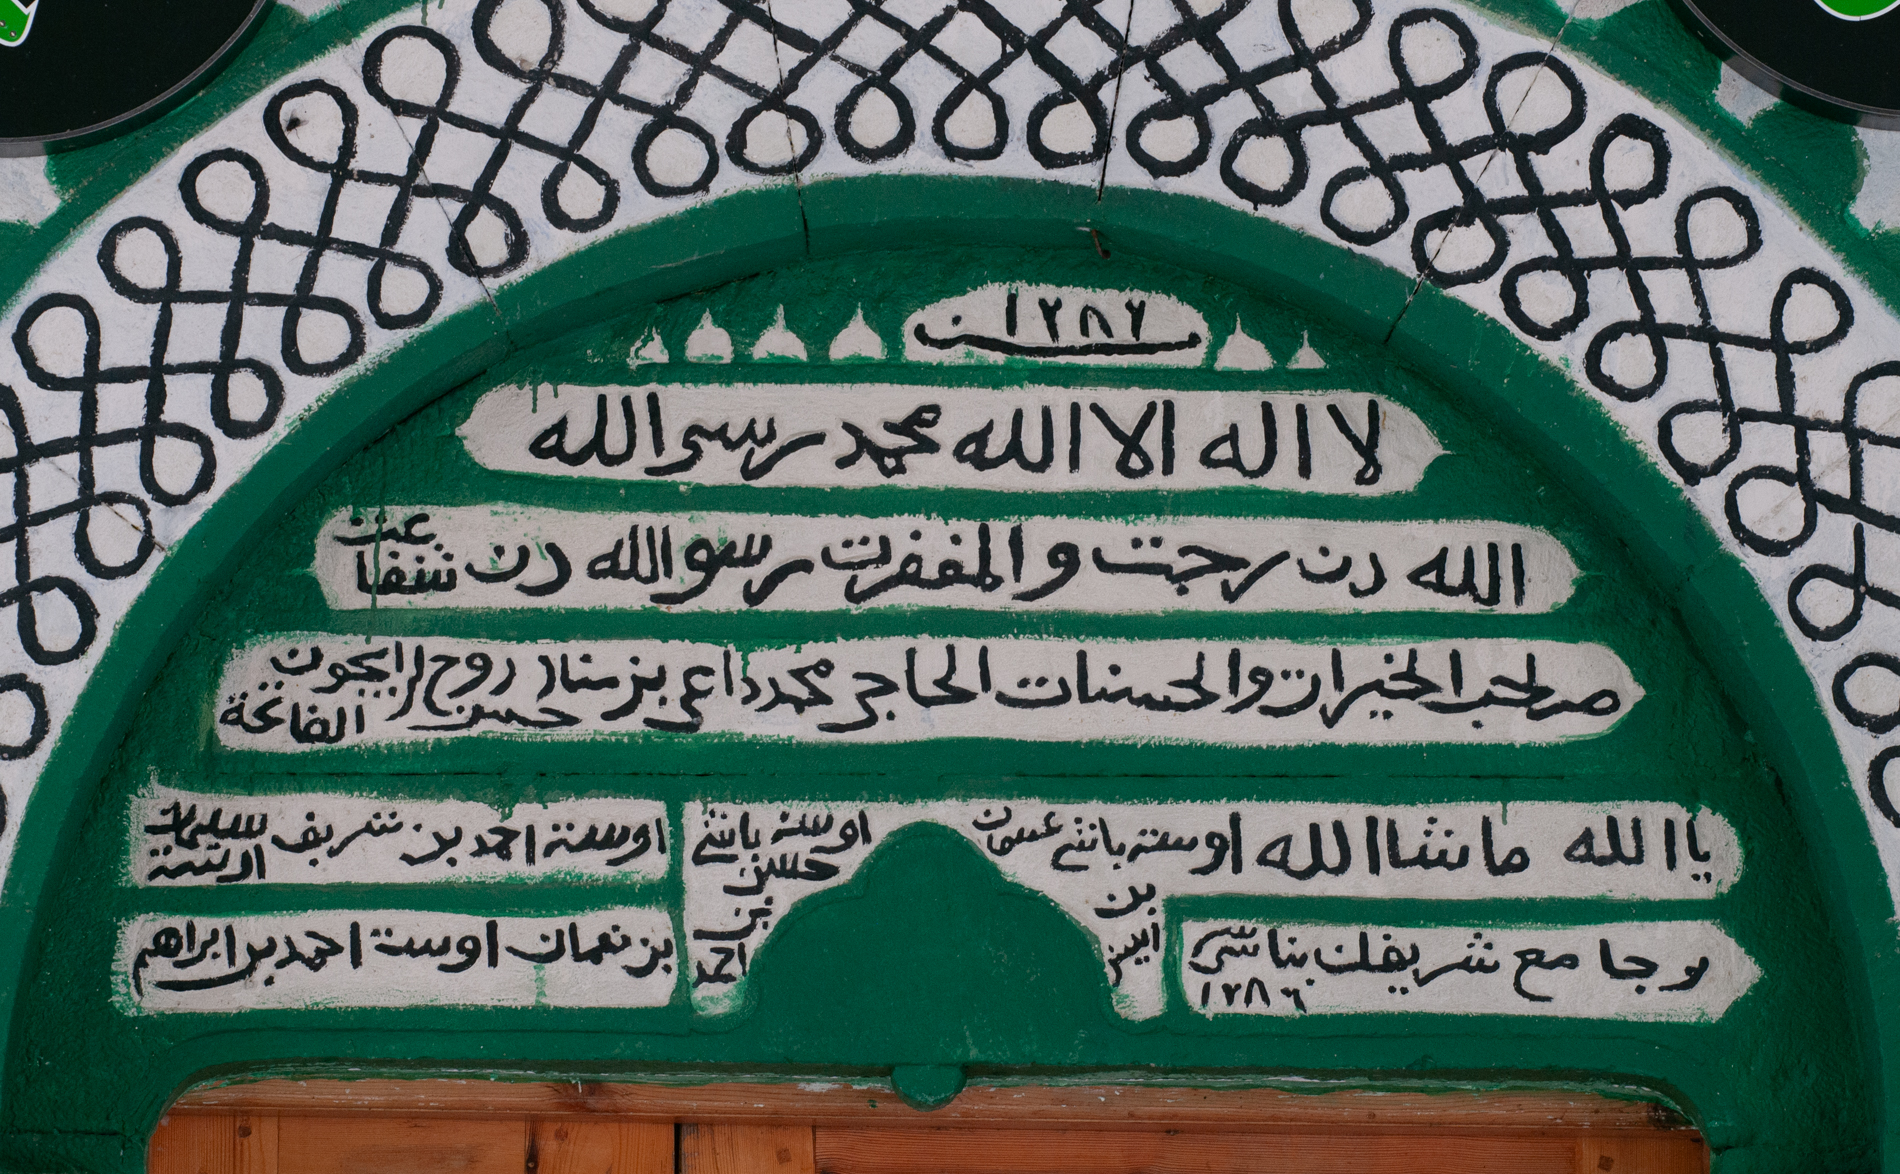 سنة ١٢٨٦
لا اله الا الله محمد رسو الله
الله دن رحمت و المغفرت رسو الله دن شفاعت
صاحب الخيرات والحسنات الحاجى محمد داعى بن حسن روح ايجون الفاتحة
يا الله ما شاا لله اوسته باشى عثمان بن امين
اوسته باشى حسين بن احمد
اوسته احمد بن شريف
بو جامع شريفك بناسى ١٢٨٦
بن نعمان اوسته احمد بن ابراهم